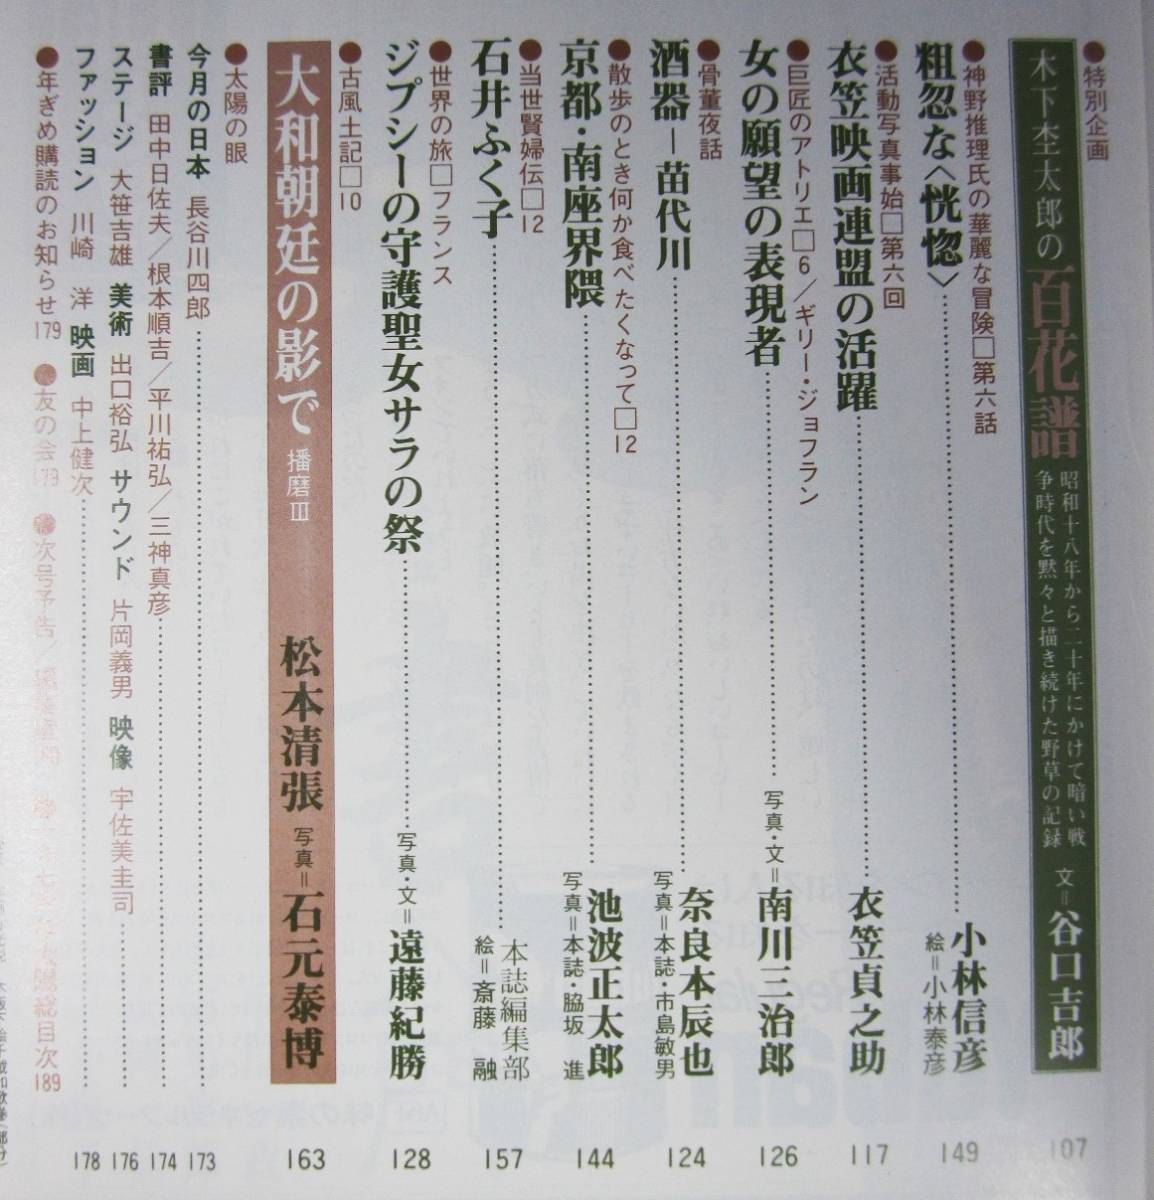 ●特別企画
木下杢太郎の百花譜
昭和十八年から二十年にかけて暗い戦
争時代を黙々と描き続けた野草の記録
文=谷口吉郎
107
●神野推理氏の華麗な冒険□第六話
粗忽な〈恍惚〉
小林信彦
絵=小林泰彦
149
●活動写真事始□第六回
衣笠映画連盟の活躍
衣笠貞之助
117
●巨匠のアトリエ□6/ギリー・ジョフラン
女の願望の表現者
写真・文=南川三治郎
126
●骨董夜話
酒器－苗代川
奈良本辰也
写真=本誌・市島敏男
124
●散歩のとき何か食べたくなって□12
京都・南座界隈
池波正太郎
写真=本誌・脇坂 進
144
●当世賢婦伝□12
石井ふく子
本誌編集部
絵=斎藤 融
157
●世界の旅□フランス
ジプシーの守護聖女サラの祭
写真・文=遠藤紀勝
128
●古風土記□10
大和朝廷の影で 播磨III
松本清張 写真=石元泰博
163
●太陽の眼
今月の日本 長谷川四郎
173
書評 田中日佐夫/根本順吉/平川祐弘/三神真彦
174
ステージ 大笹吉雄 美術 出口裕弘 サウンド 片岡義男 映像 宇佐美圭司
176
ファッション 川崎 洋 映画 中上健次
178
●年ぎめ購読のお知らせ179 ●友の会179 ●次号予告/ 太陽総目次189